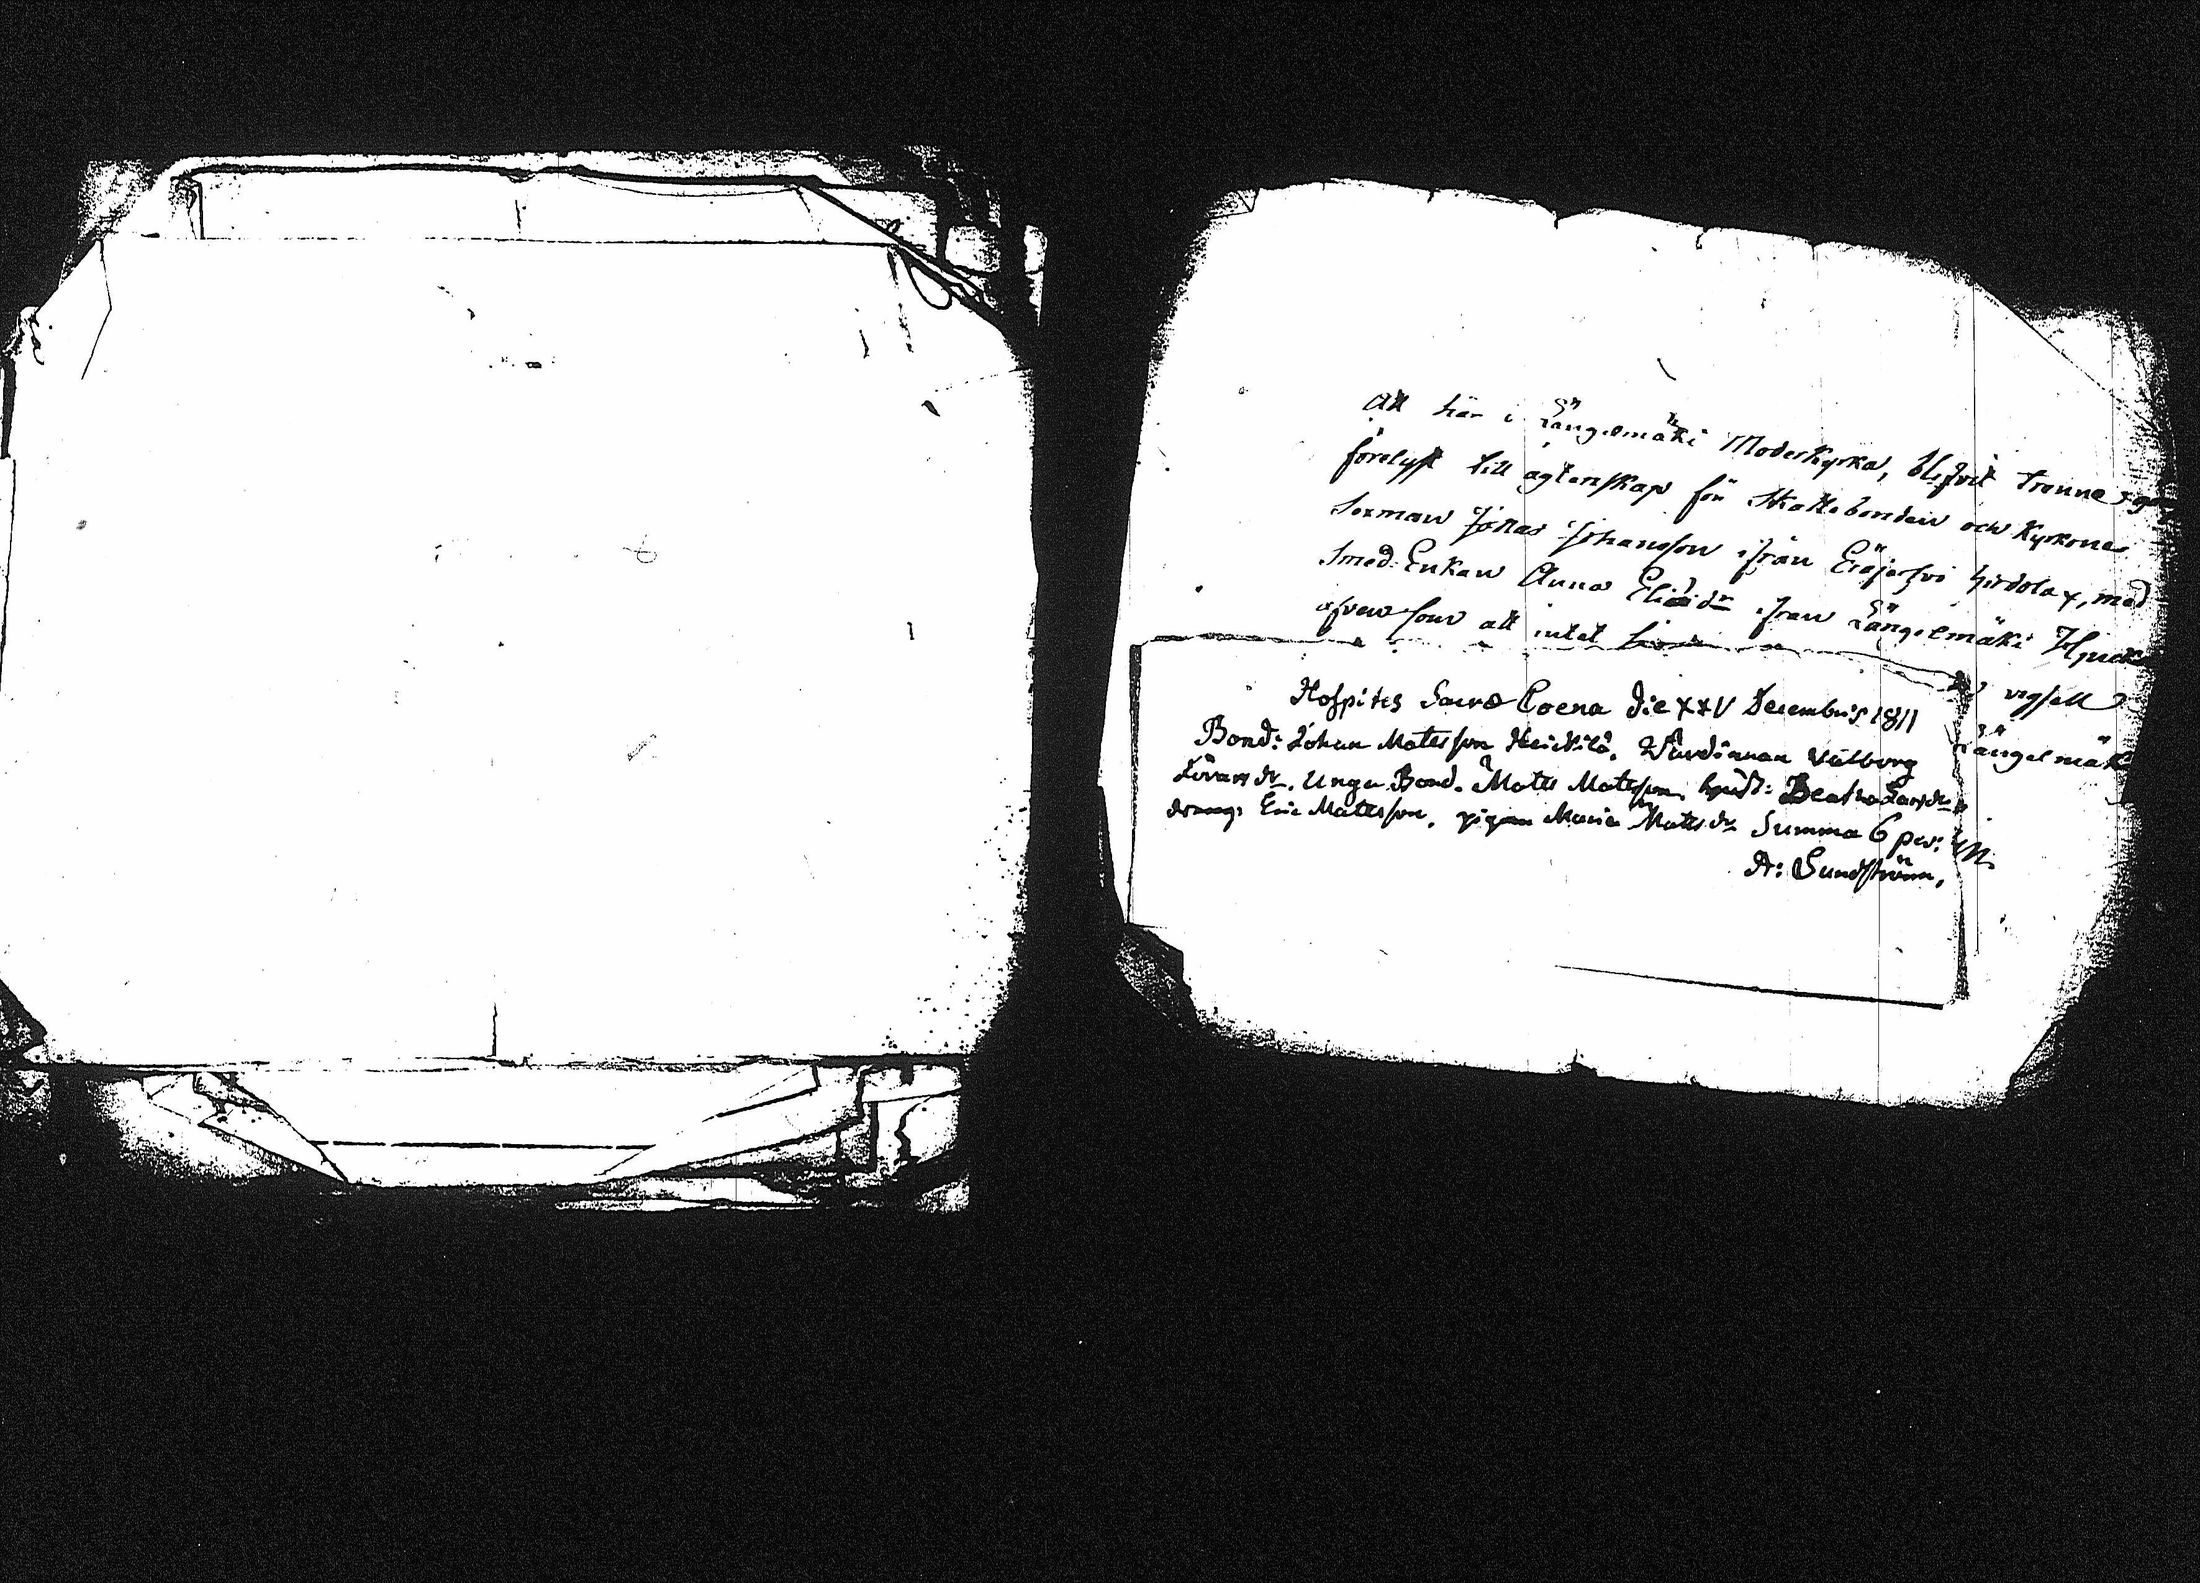 Att här i Längelmäki Moderkyrka, blifvit trenne
förelyst till ägtenskap för Skattebonden och Kyrkone
Sexman Jonas Johansson ifrån Eräjerfvi hirdolax, med
Smed Enkan Anna dr ifran Längelmäki
äfven som att intet
vigsell
Längelmäki
Hospites Sacræ Coena die XXV Decembris 1811
Bond: Johan Matsson Heickilä, Värdinnan Valborg
dr. Unga Bond. Matts Mattsson hust: Beata Larsdr
dräng: Eric Mattsson, pigan Maria Matsdr Summa 6 per:
A: Sundström,